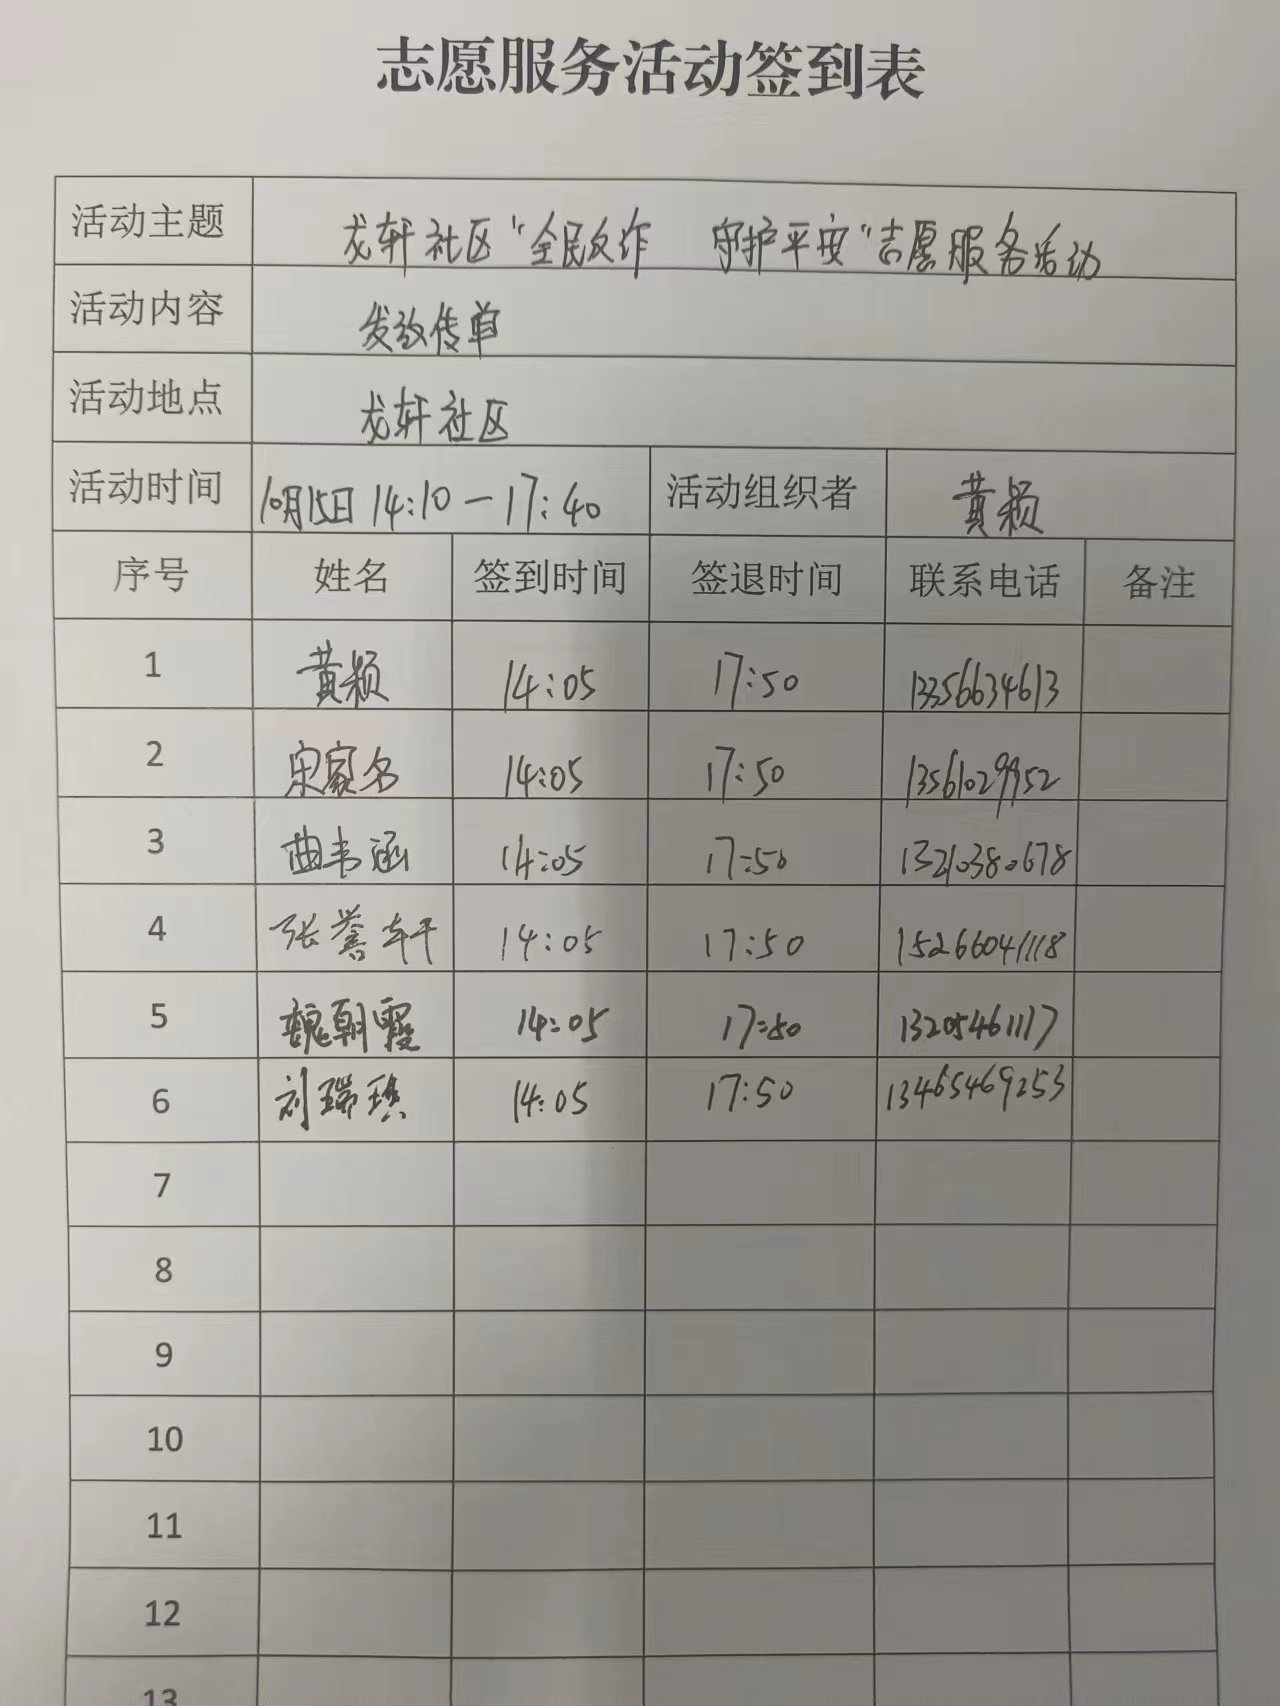 志愿服务活动签到表
活动主题 龙轩社区“全民反诈 守护平安”志愿服务活动
活动内容 发放传单
活动地点 龙轩社区
活动时间 10月15日 14:10-17:40 活动组织者 黄颖
序号 姓名 签到时间 签退时间 联系电话 备注
1 黄颖 14:05 17:50 13356634613
2 宋家名 14:05 17:50 13561029952
3 曲韦涵 14:05 17:50 13210380678
4 张誉轩 14:05 17:50 15266041118
5 魏朝霞 14:05 17:50 13205461117
6 刘瑞琪 14:05 17:50 13465469253
7
8
9
10
11
12
13